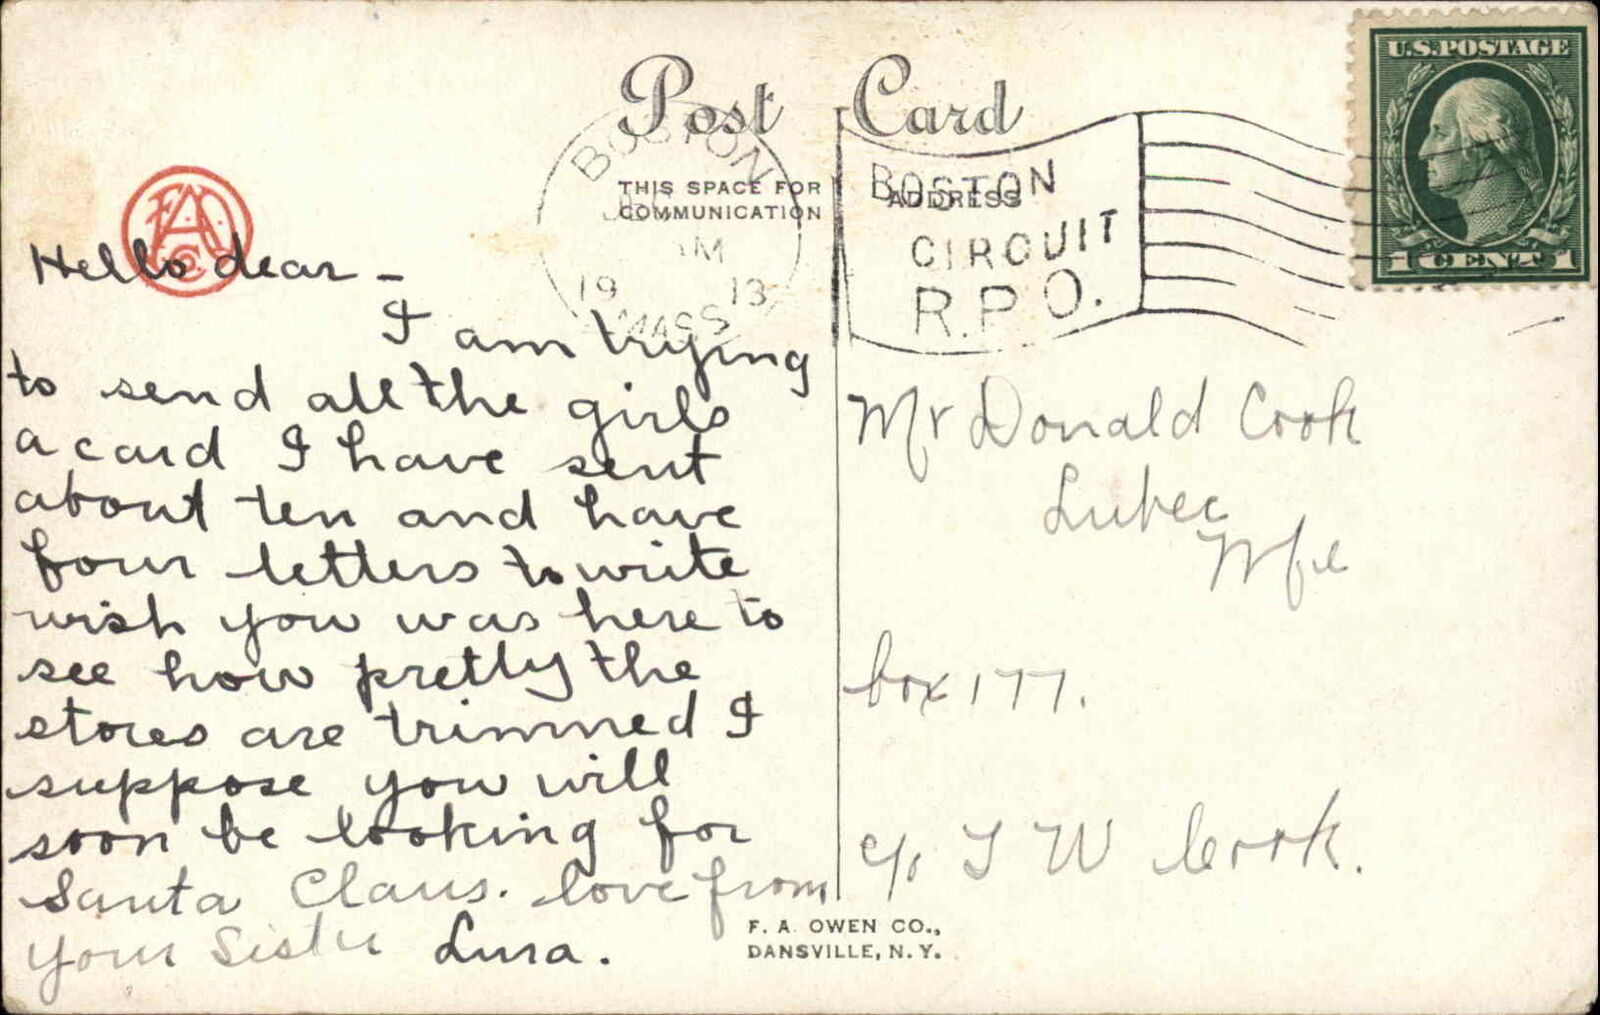 Post Card
THIS SPACE FOR
COMMUNICATION
ADDRESS
BOSTON
19 13
MASS
BOSTON
CIRCUIT
R.P.O.
U.S. POSTAGE
1 CENT 1
Hello dear -
I am trying
to send all the girls
a card I have sent
about ten and have
four letters to write
wish you was here to
see how pretty the
stores are trimmed I
suppose you will
soon be looking for
Santa Claus. love from
your Sister Lura.
Mr Donald Cook
Lubec
Me
box 177.
c/o T W Cook.
F. A. OWEN CO.,
DANSVILLE, N. Y.